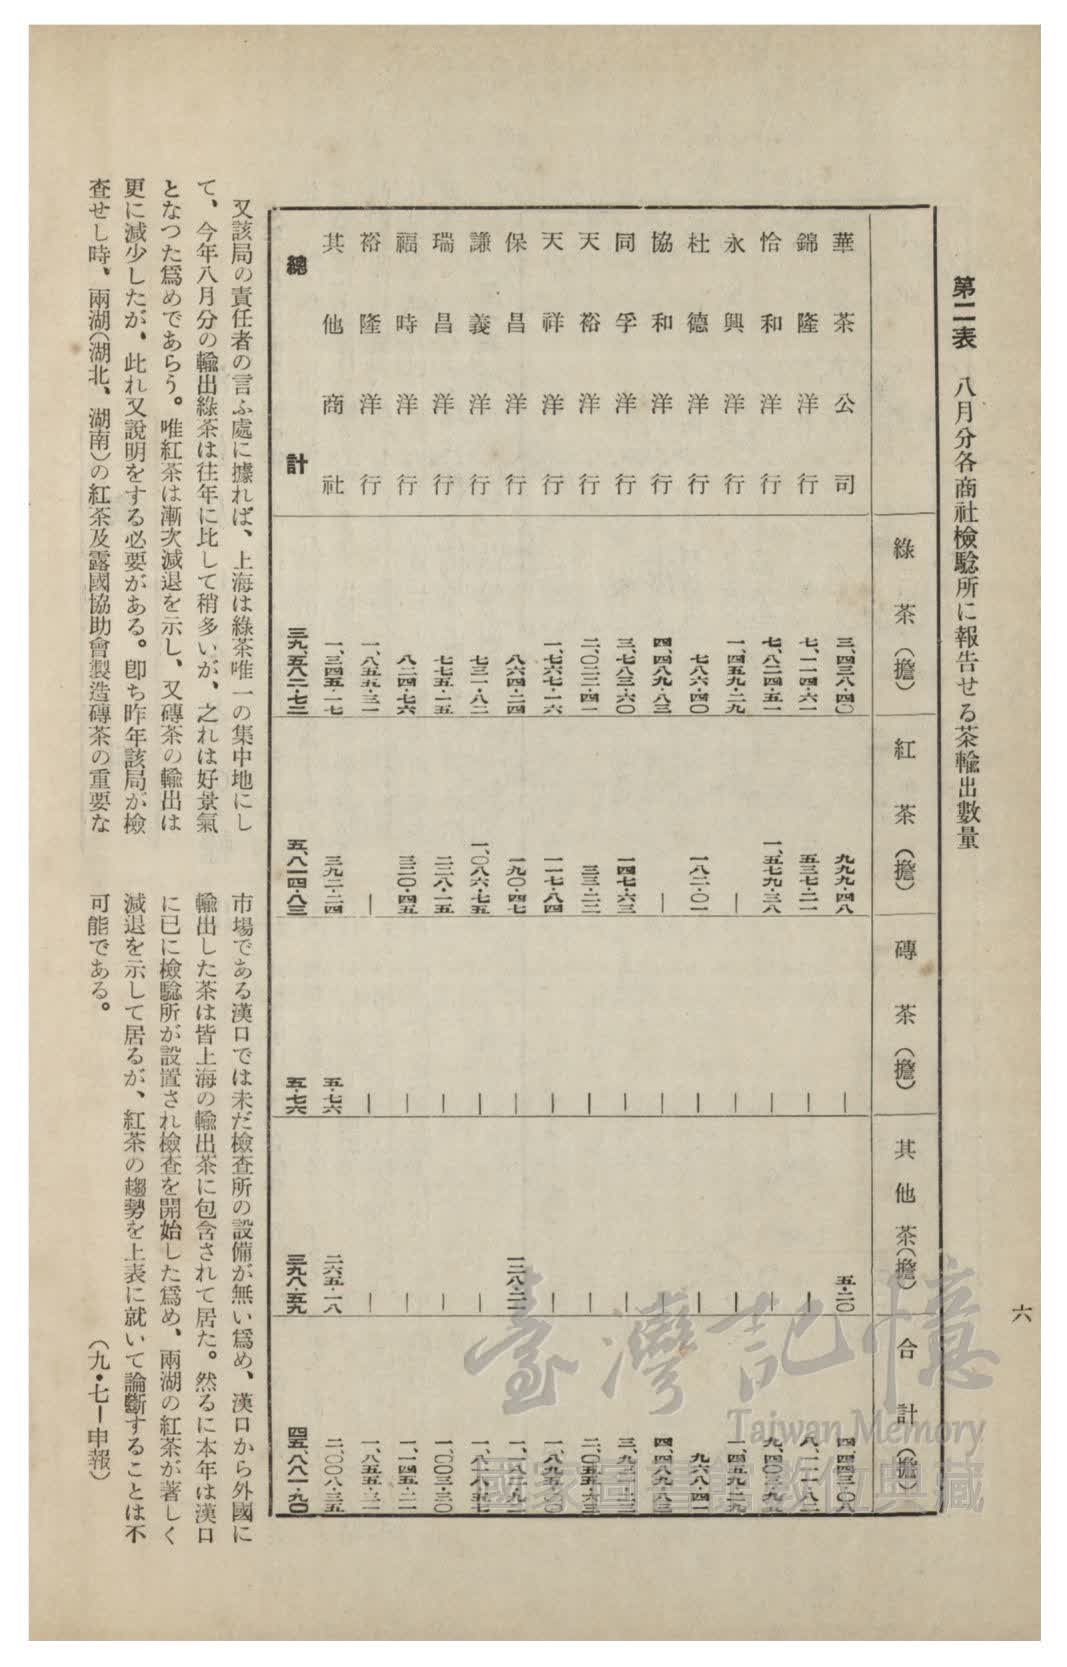 六
第二表　八月分各商社檢驗所に報告せる茶輸出數量
綠茶（擔）　紅茶（擔）　磚茶（擔）　其他茶（擔）　合計（擔）
華茶公司　三、四三八・四〇　九九九・四八　｜　五・二〇　四、四四三・〇八
錦隆洋行　七、一一四・六一　五三七・二一　｜　｜　八、一一一・八二
恰和洋行　七、八二四・五一　一、五七九・三八　｜　｜　九、四〇三・八九
永興洋行　一、四五九・二九　｜　｜　｜　一、四五九・二九
杜德洋行　七八六・四〇　一八二・〇一　｜　｜　九六八・四一
協和洋行　四、四八九・八三　｜　｜　｜　四、四八九・八三
同孚洋行　三、七八三・六〇　一四七・六三　｜　｜　三、九三一・二三
天裕洋行　二、〇二二・四一　三三・二二　｜　｜　二、〇五五・六三
天祥洋行　一、七六七・一六　一一七・八四　｜　｜　一、八九五・〇〇
保昌洋行　八六四・二四　一九〇・四七　｜　一二八・二一　一、一八二・九二
謙義洋行　七三一・八二　一、〇八六・七五　｜　｜　一、八一八・五七
瑞昌洋行　七七五・一五　二二八・一五　｜　｜　一、〇〇三・三〇
福時洋行　八二四・七六　三二〇・四五　｜　｜　一、一四五・二一
裕隆洋行　一、八五五・三一　｜　｜　｜　一、八五五・三一
其他商社　一、三四五・一七　三九二・二四　五・七六　二六五・一八　二、〇〇八・三五
總計　三九、五八二・七二　五、八一四・八三　五・七六　三九八・五九　四五、八八一・九〇
又該局の責任者の言ふ處に據れば、上海は綠茶唯一の集中地にし
て、今年八月分の輸出綠茶は往年に比して稍多いが、之れは好景氣
となつた爲めであらう。唯紅茶は漸次減退を示し、又磚茶の輸出は
更に減少したが、此れ又說明をする必要がある。卽ち昨年該局が檢
查せし時、兩湖（湖北、湖南）の紅茶及露國協助會製造磚茶の重要な
市場である漢口では未だ檢查所の設備が無い爲め、漢口から外國に
輸出した茶は皆上海の輸出茶に包含されて居た。然るに本年は漢口
に已に檢驗所が設置され檢查を開始した爲め、兩湖の紅茶が著しく
減退を示して居るが、紅茶の趨勢を上表に就いて論斷することは不
可能である。
（九・七ー申報）
臺灣記憶
Taiwan Memory
國家圖書館數位典藏